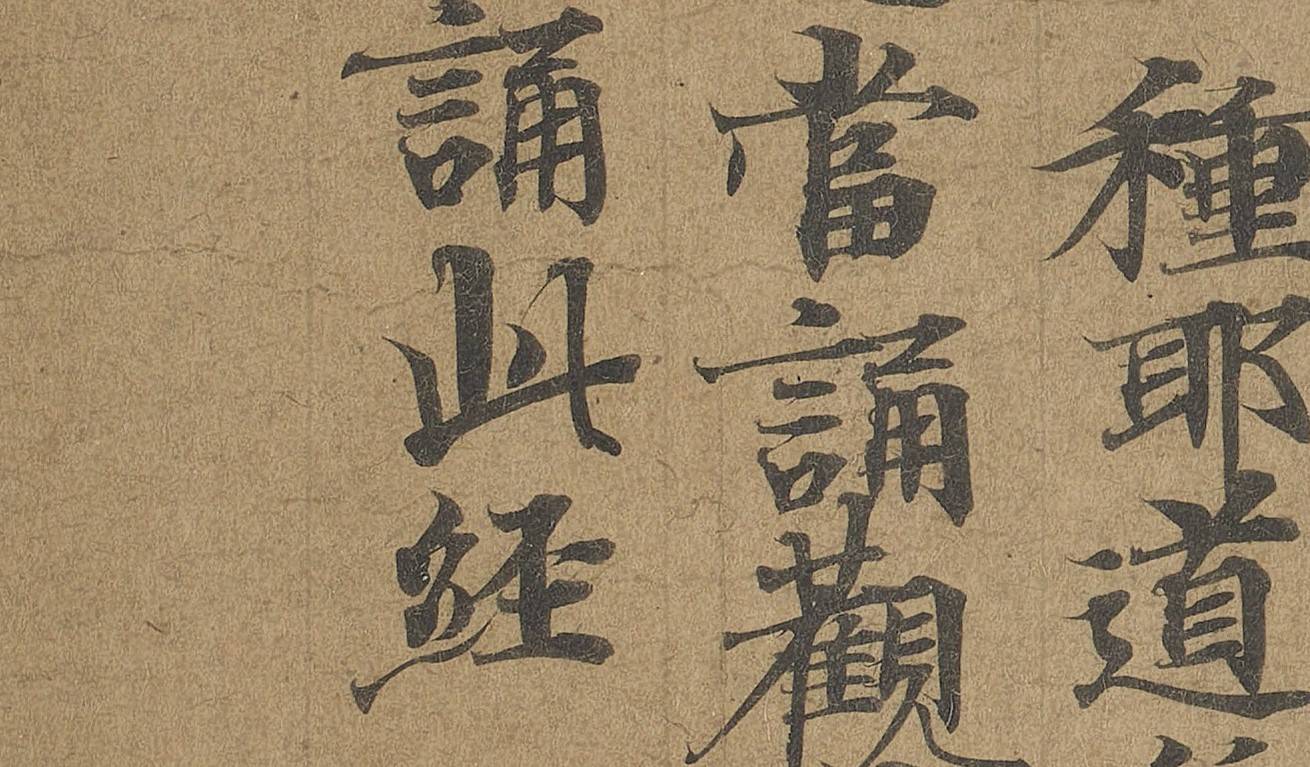 種耶道
當誦觀
誦此經